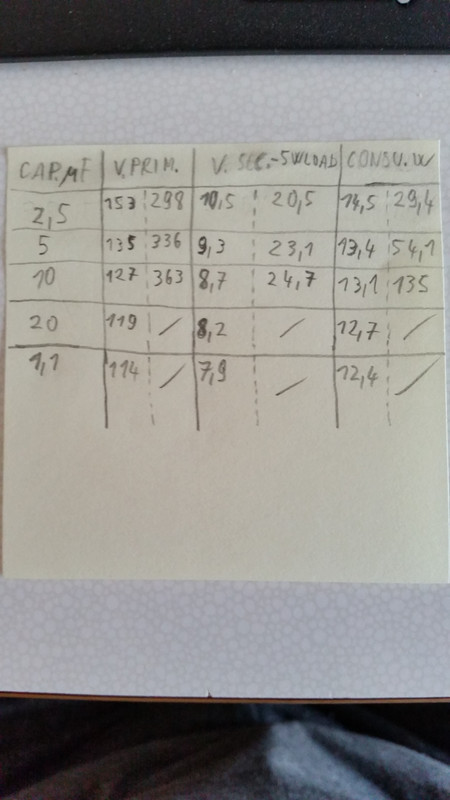 CAP.µF V.PRIM. V. SEC.-5WLOAD CONSU.W
2,5 153 298 10,5 20,5 14,5 29,4
5 135 336 9,3 23,1 13,4 54,1
10 127 363 8,7 24,7 13,1 135
20 119 / 8,2 / 12,7 /
1,1 114 / 7,9 / 12,4 /